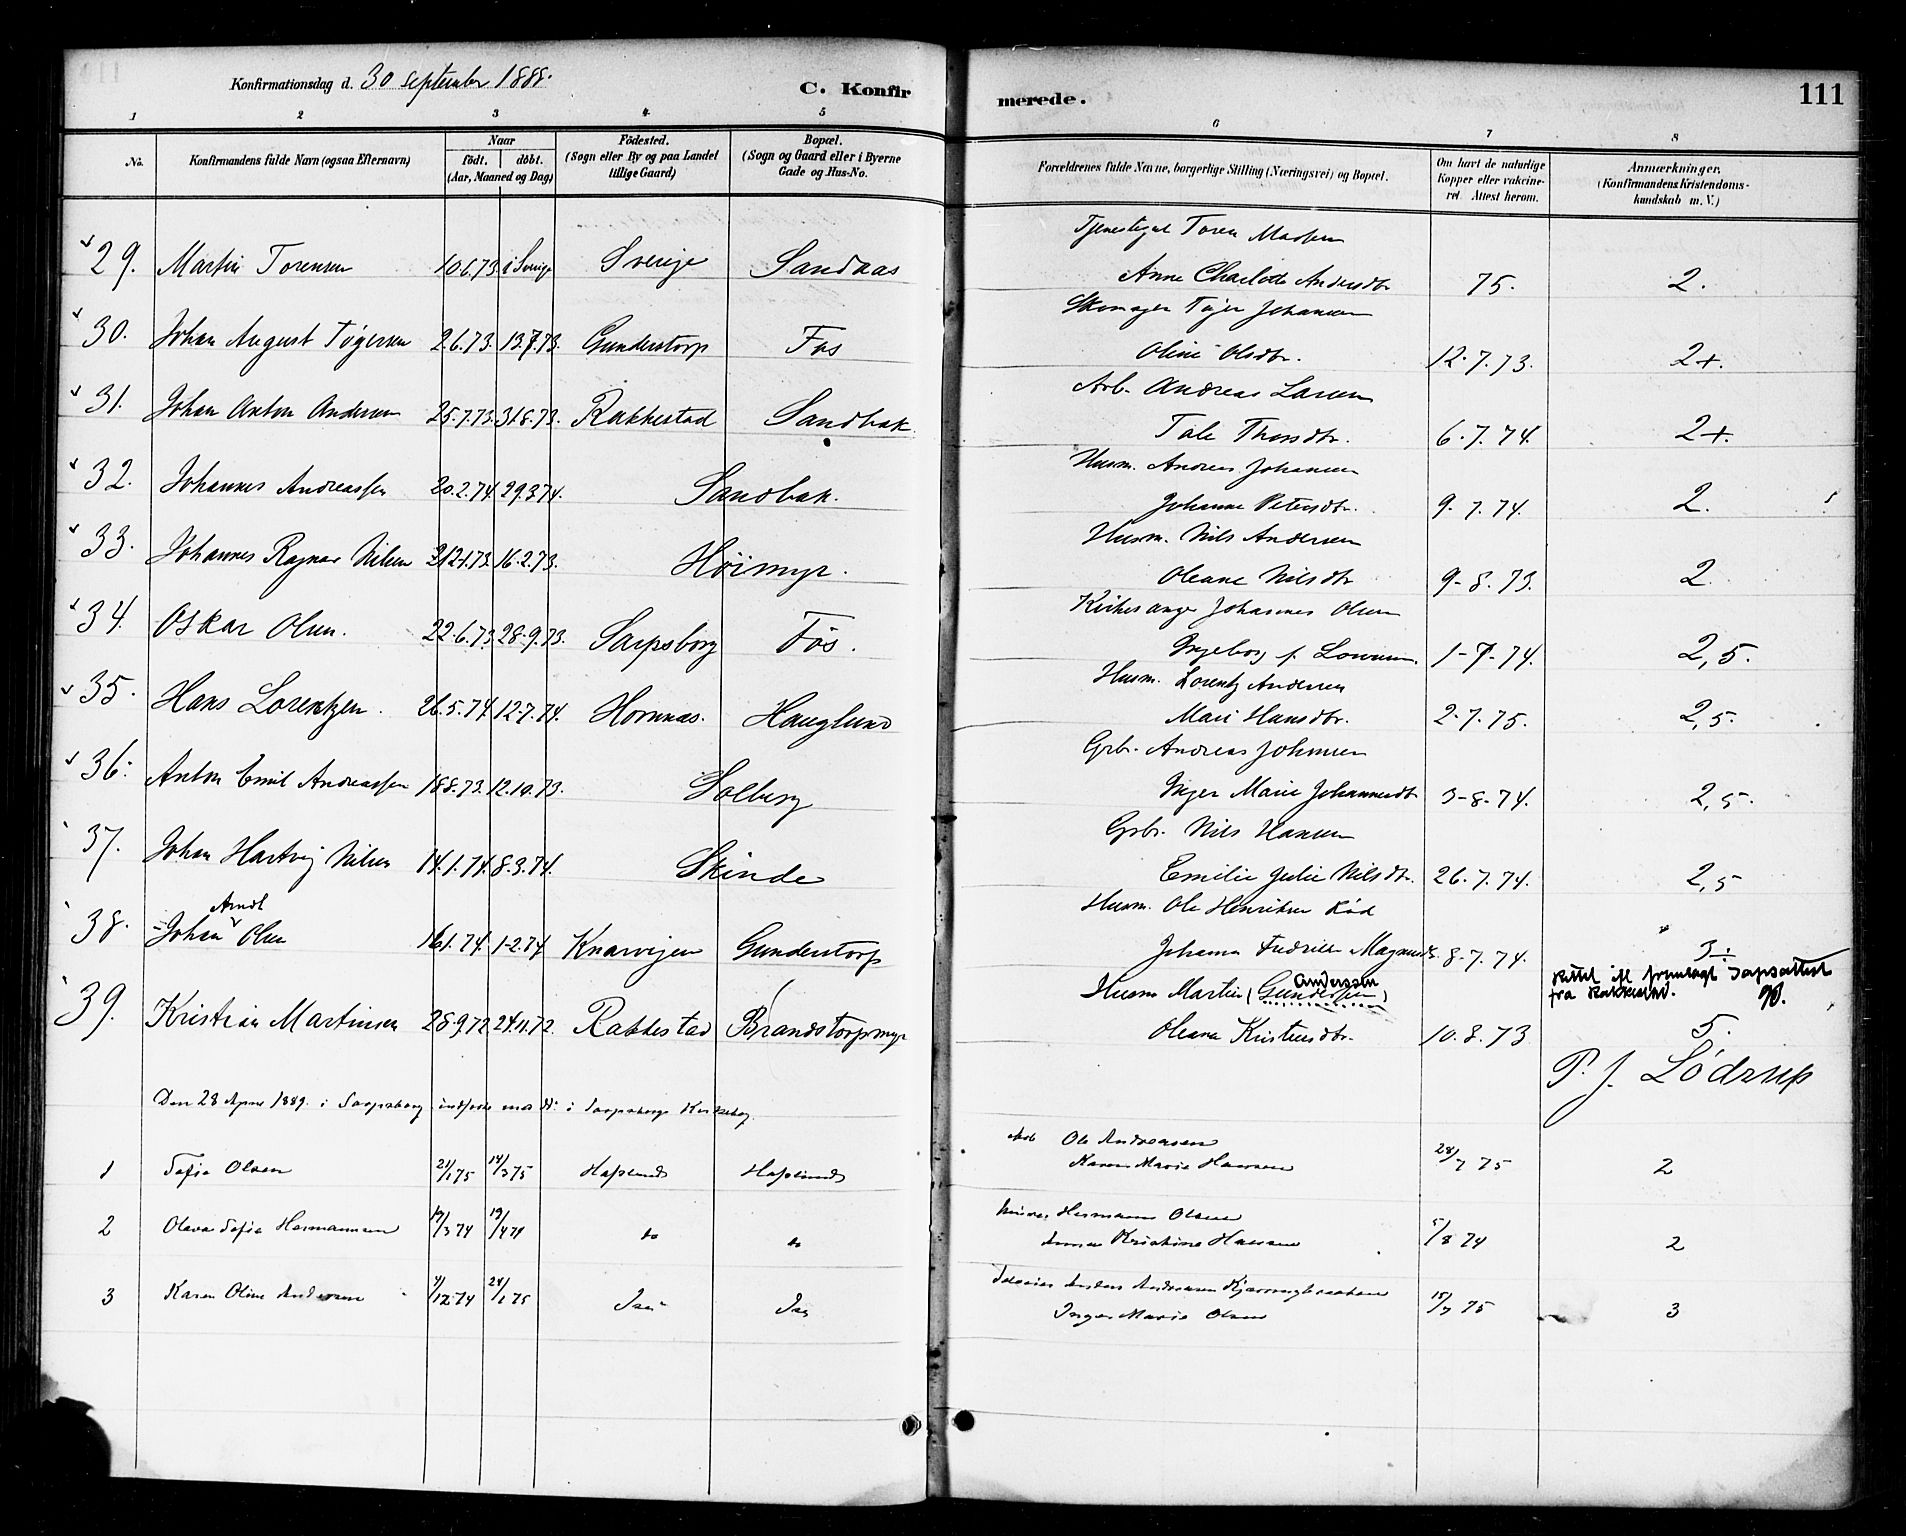 Konfirmationsdag d. 30 September 1888.
C. Konfirmerede.
111
1 2 3 4 5 6 7 8
No.
Konfirmandens fulde Navn (ogsaa Efternavn)
Naar
födt. döbt.
(Aar, Maaned og Dag)
Födested.
(Sogn eller By og paa Landet
tillige Gaard)
Bopæl.
(Sogn og Gaard eller i Byerne
Gade og Hus-No.
Forældrenes fulde Navne, borgerlige Stilling (Næringsvei) og Bopæl.
Om havt de naturlige
Kopper eller vakcine-
ret. Attest herom.
Anmærkninger.
(Konfirmandens Kristendoms-
kundskab m. V.)
Toren
29. Martin Torensen 10.6.73. i Sverige Sverige Sandaas Anne Charlotte Andersdtr 75. 2.
Skomager Töger Johansen
30. Johan August Tögersen 2.6.73. 13.7.73. Gunderstorp Fos Oline Olsdtr. 12.7.73. 2+.
Arb. Andreas Larsen
31. Johan Anton Andersen 25.7.73. 31.8.73. Rakkestad Sandbak Tale Thorsdtr. 6.7.74. 2+.
Husm. Andreas Johansen
32. Johannes Andreassen 20.2.74. 29.3.74. Sandbak. Johanne Petersdtr. 9.7.74. 2.
Husm. Nils Andersen
33. Johannes Ragnar Nilsen 16.2.73. Höimyr. Oleane Nilsdtr 9-8.73. 2.
Kirkesanger Johannes Olsen
34. Oskar Olsen. 22.6.73. 28.9.73. Sarpsborg Fös. Ingeborg f. 1-7-74. 2,5.
Husm. Lorentz Andersen
35. Hans Lorentzen. 26.5.74. 12.7.74. Hornnæs. Hauglund Mari Hansdtr. 2.7.75. 2,5.
Grbr. Andreas Johnsen
36. Anton Emil Andreassen 18.8.73. 12.10.73. Solberg Inger Marie Johannesdt 3-8-74. 2,5.
Grbr. Nils Hansen
37. Johan Hartvig Nilsen 14.1.74. 8.3.74. Skinde Emilie Julie Nilsdtr. 26.7.74. 2,5
Husm. Ole Henriksen Röd
Arndt
38. Johan Olsen 16.1.74. 1-2.74. Knarvigen Gunderstorp Johanna Fredrikke 8.7.74. 3÷
Rettet ifl. fremlagt Daapsattest
fra Rakkestad.
Anderssen
Husm Martin (Gundersen)
39. Kristian Martinsen 28.9.72. 24.11.72. Rakkestad Brandstorpmyr Oleana Kristensdtr. 10.8.73 5.
P. J. Lödrup
Den 28 April 1889. i Sarpsborg indførte i Sarpsborgs Kirkebog.
Arb Ole Andreasen
1 Sofie Olsen 21/1 75 14/3 75 Hafslund Hafslund Karen Marie Hansen 28/7 75 2
Hermann Olsen
2 Olava Sofie Hermannsen 17/3 74 19/4 74 do do Anna Kristine Hansen 5/8 74 2
Anders Andersen
3 Karen Oline Andersen 4/12 74 24/1 75 Inger Marie Olsen 15/7 75 3